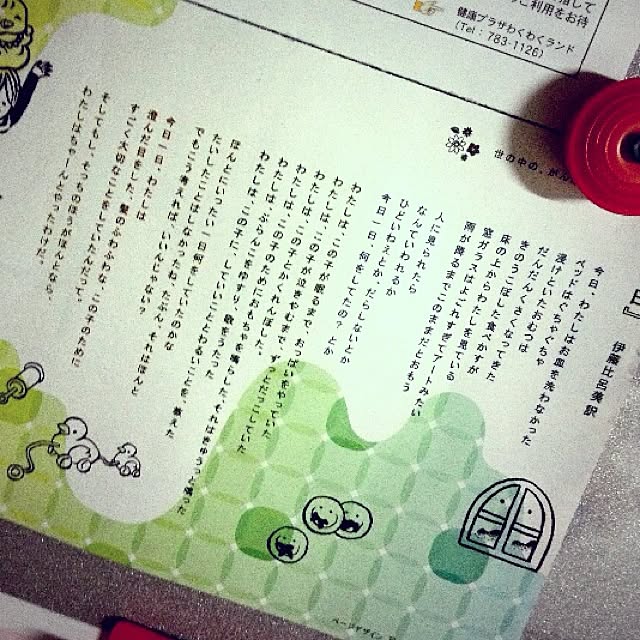 指して
ご利用をお待
健康プラザわくわくランド
(Tel：783-1126)
世の中の、がん
日』
伊藤比呂美訳
今日、わたしはお皿を洗わなかった
ベッドはぐちゃぐちゃ
浸けといたおむつは
だんだんくさくなってきた
きのうこぼした食べかすが
床の上からわたしを見ている
窓ガラスはよごれすぎてアートみたい
雨が降るまでこのままだとおもう
人に見られたら
なんていわれるか
ひどいねえとか、だらしないとか
今日一日、何をしてたの？とか
わたしは、この子が眠るまで、おっぱいをやっていた
わたしは、この子が泣きやむまで、ずっとだっこしていた
わたしは、この子とかくれんぼした。
わたしは、この子のためにおもちゃを鳴らした、それはきゅうっと鳴った
わたしは、ぶらんこをゆすり、歌をうたった
わたしは、この子に、していいこととわるいことを、教えた
ほんとにいったい一日何をしていたのかな
たいしたことはしなかったね、たぶん、それはほんと
でもこう考えれば、いいんじゃない？
今日一日、わたしは
澄んだ目をした、髪のふわふわな、この子のために
すごく大切なことをしていたんだって
そしてもし、そっちのほうがほんとなら、
わたしはちゃーんとやったわけだ。
ページデザイン